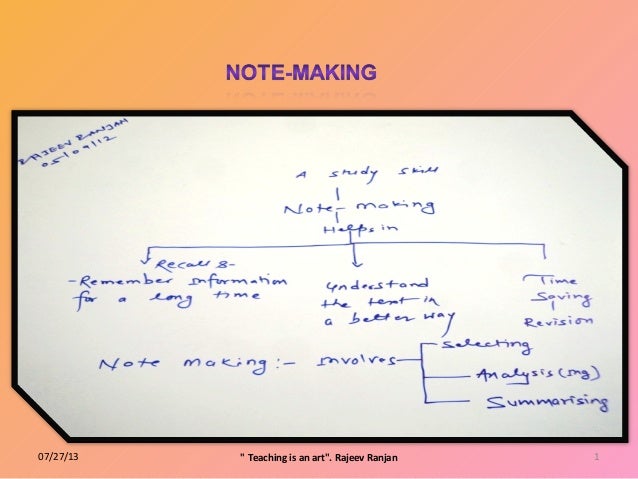 NOTE-MAKING
RAJEEV RANJAN
05/09/12
A study skill
Note-making
Helps in
Recall &-
-Remember Information
for a long time
Understand
the text in
a better way
Time
Saving
Revision
Note making:- Involves
Selecting
Analysis(ing)
Summarising
07/27/13
" Teaching is an art". Rajeev Ranjan
1